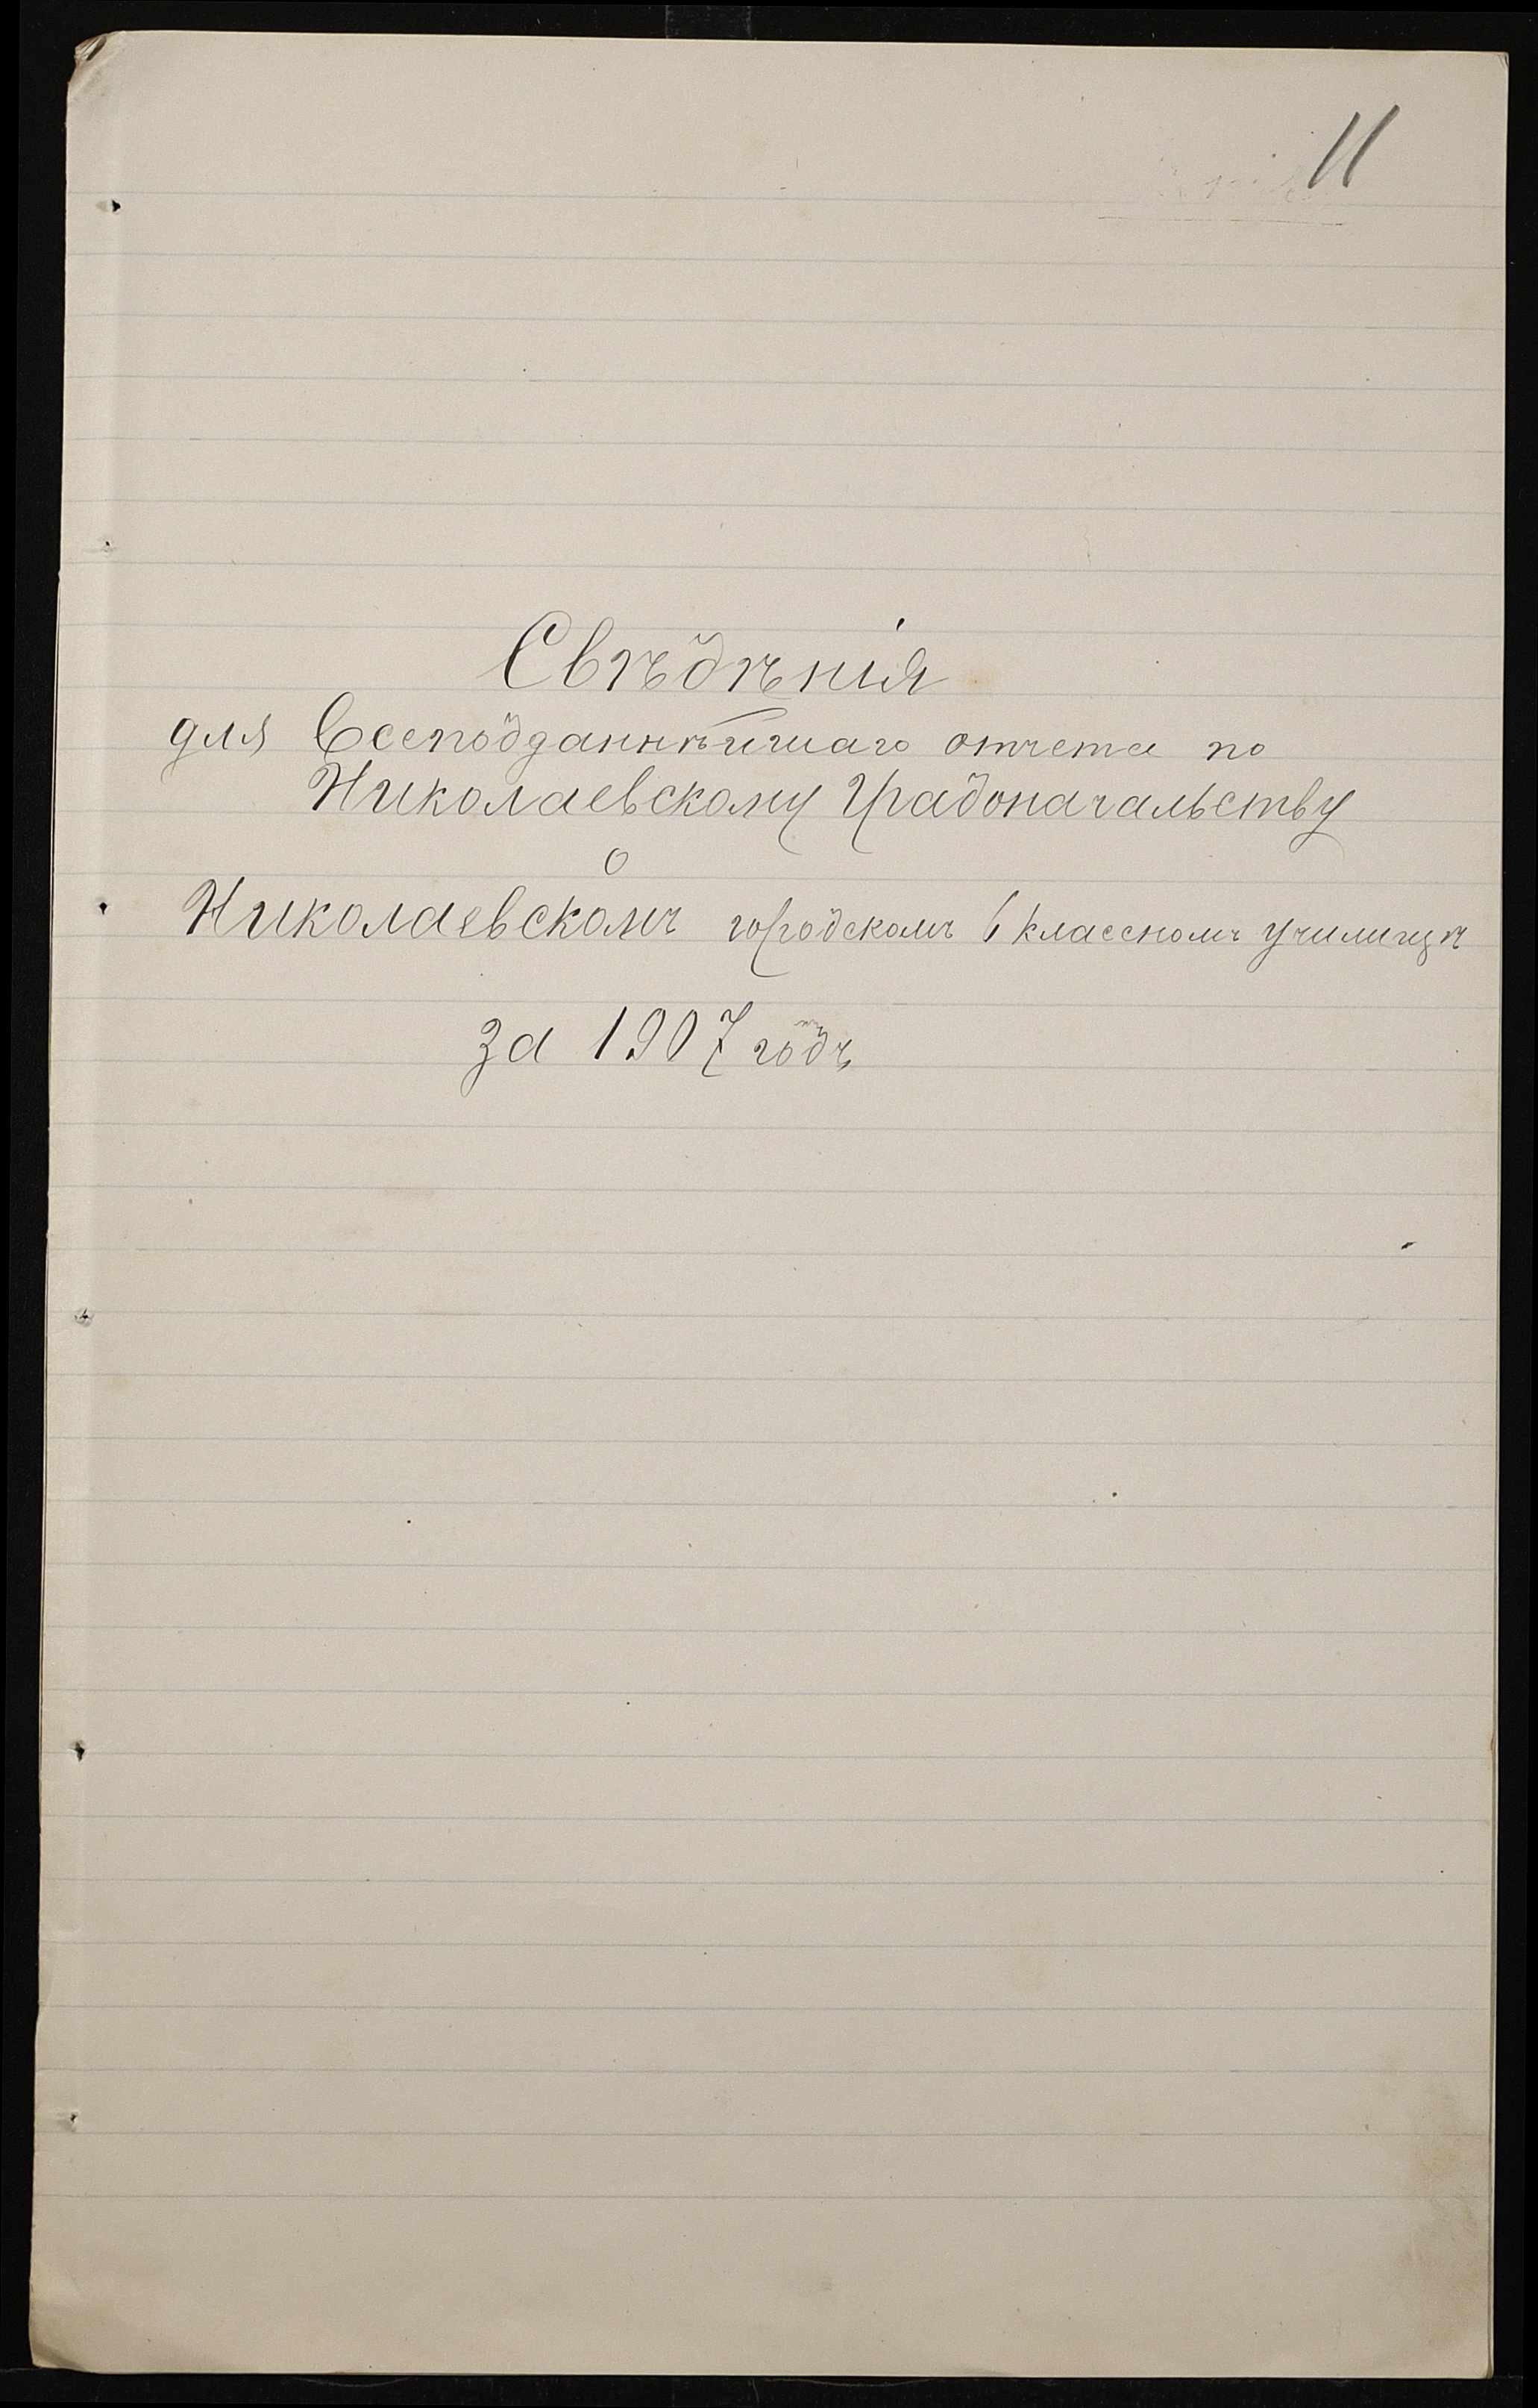 11
Свѣдѣнія
для Всеподданнѣйшаго отчета по
Николаевскому Градоначальству
о
Николаевскомъ городскомъ 6 классномъ училищѣ
за 1907 годъ